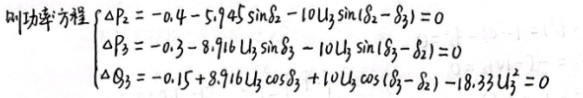 则功率方程 { ΔP₂ = -0.4 - 5.945 sinδ₂ - 10U₃ sin(δ₂ - δ₃) = 0
ΔP₃ = -0.3 - 8.916 U₃ sinδ₃ - 10U₃ sin(δ₃ - δ₂) = 0
ΔQ₃ = -0.15 + 8.916 U₃ cosδ₃ + 10U₃ cos(δ₃ - δ₂) - 18.33U₃² = 0